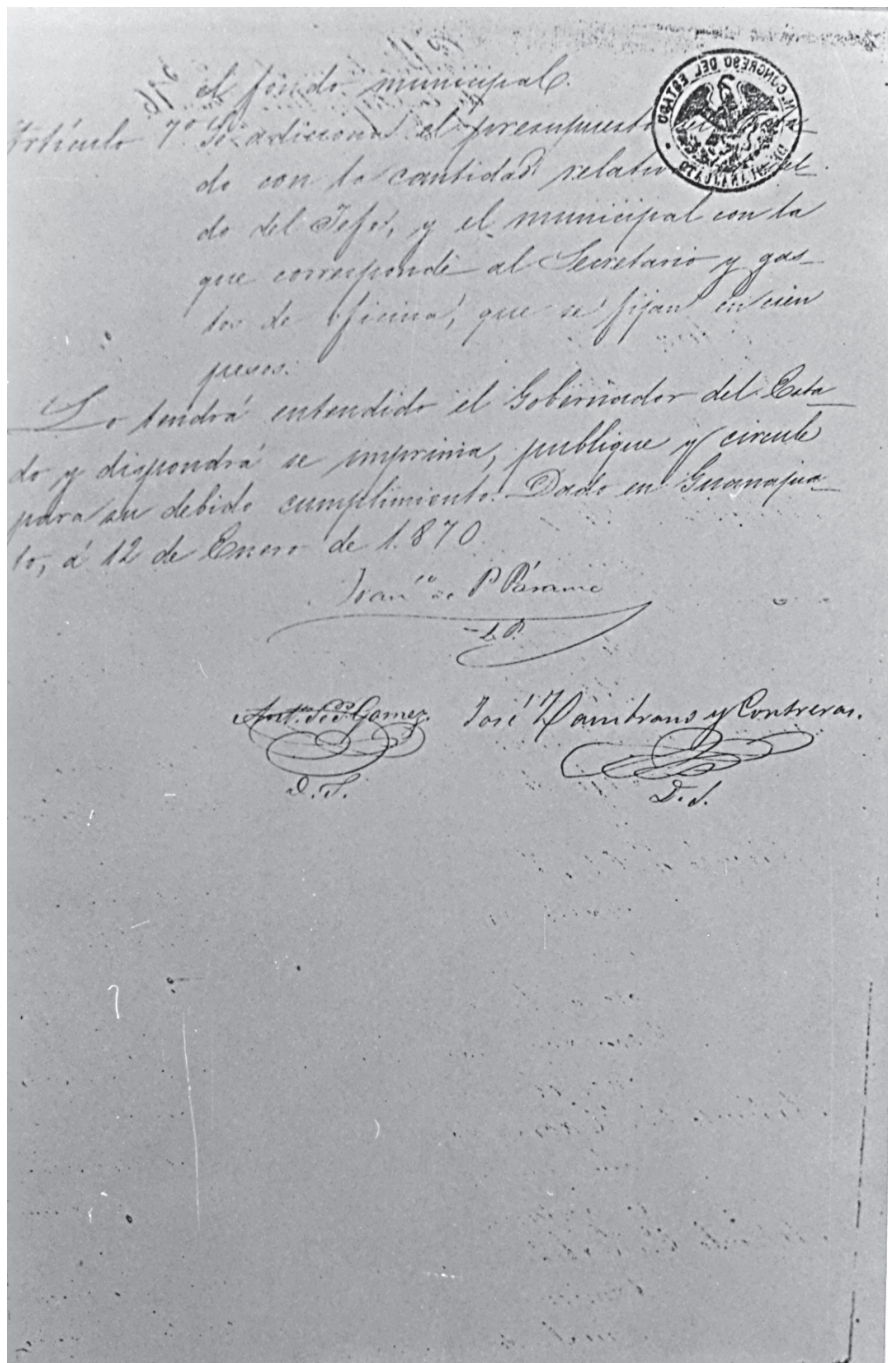 el fondo municipal.
Artículo 7º Se adiciona el presupuesto
do con la cantidad relati
do del Jefe, y el municipal con la
que corresponde al Secretario y gas-
tos de oficina, que se fijan en cien
pesos.
Lo tendrá entendido el Gobernador del Esta-
do y dispondrá se imprima, publique y circule
para su debido cumplimiento. Dado en Guanajua-
to, á 12 de Enero de 1.870.
Franco de P Páramo
D. P.
Gomez. José Zambrano y Contreras.
D. S. D. S.
H. CONGRESO DEL ESTADO
DE GUANAJUATO